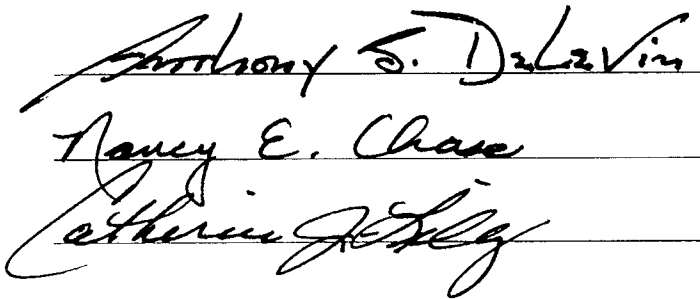 Anthony S. DeLeVin
Nancy E. Chase
Catherine J.